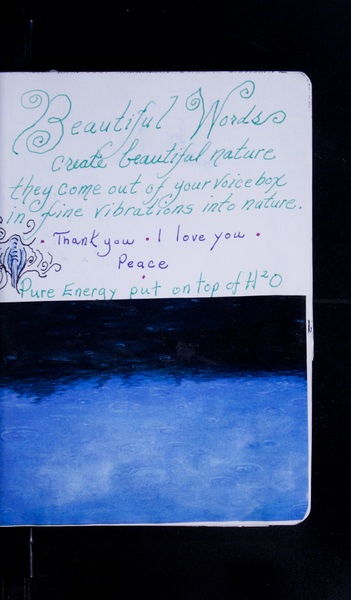 Beautiful Words
create beautiful nature
they come out of your voice box
in fine vibrations into nature.
• Thank you • I love you •
Peace
Pure Energy put on top of H²O